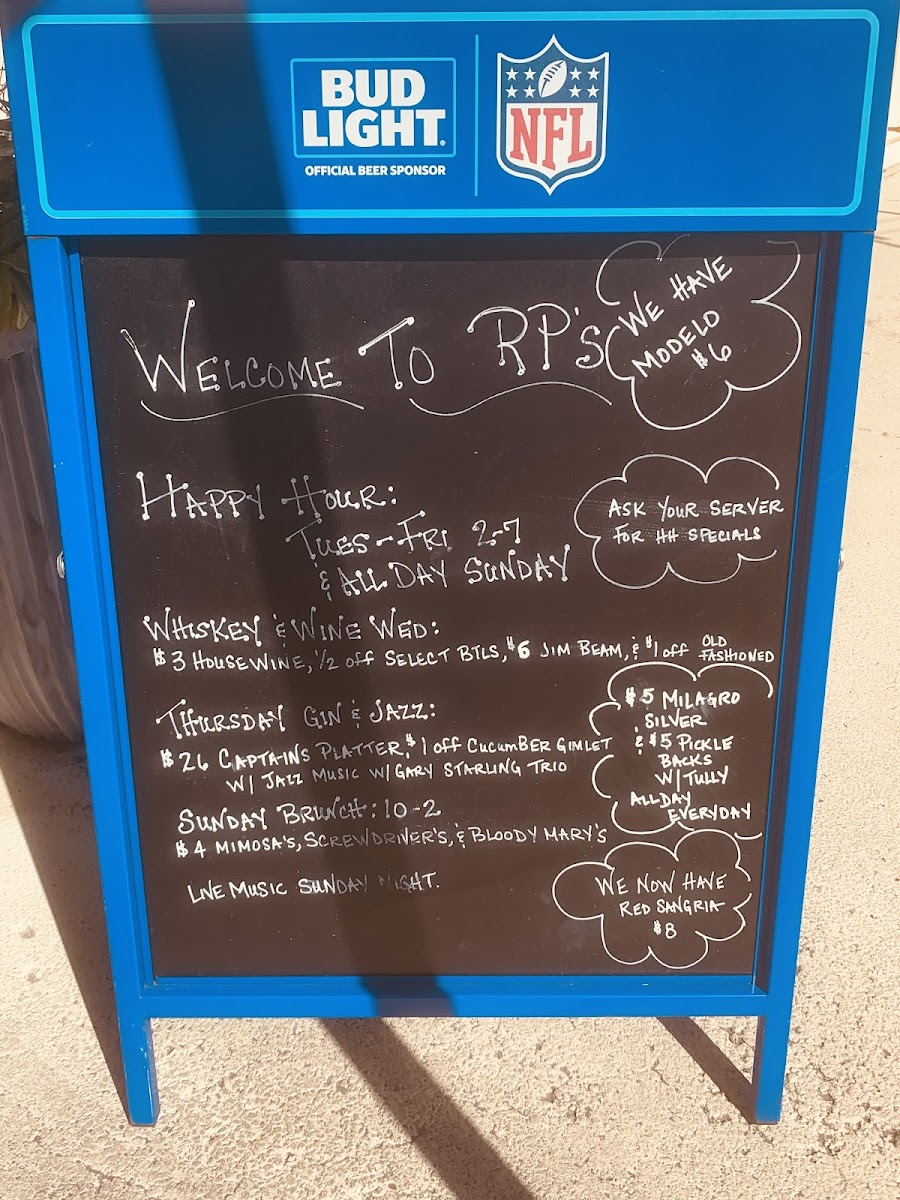 BUD
LIGHT.
OFFICIAL BEER SPONSOR
NFL
WELCOME TO RP'S
WE HAVE
MODELO
$6
HAPPY HOUR:
TUES-FRI 2-7
& ALL DAY SUNDAY
ASK YOUR SERVER
FOR HH SPECIALS
WHISKEY & WINE WED:
$3 HOUSE WINE, 1/2 off SELECT BTLS, $6 JIM BEAM, & $1 off OLD FASHIONED
THURSDAY GIN & JAZZ:
$26 CAPTAINS PLATTER, $1 off CUCUMBER GIMLET
W/ JAZZ MUSIC W/ GARY STARLING TRIO
SUNDAY BRUNCH: 10-2
$4 MIMOSA'S, SCREWDRIVER'S, & BLOODY MARY'S
LIVE MUSIC SUNDAY NIGHT.
$5 MILAGRO
SILVER
& $5 PICKLE
BACKS
W/ TULLY
ALL DAY
EVERYDAY
WE NOW HAVE
RED SANGRIA
$8